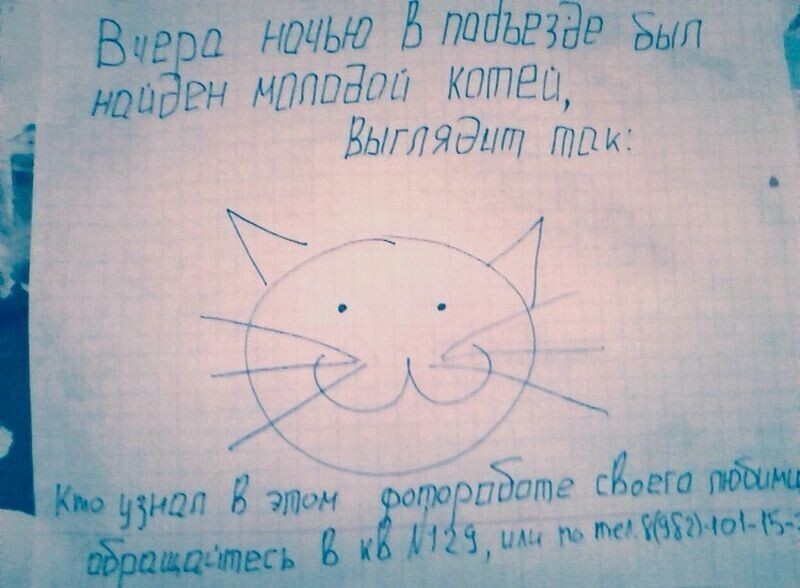 Вчера ночью в подъезде был
найден молодой котей,
Выглядит так:
Кто узнал в этом фоторработе своего любими
обращайтесь в кв №129, или по тел. 8(982)-101-15-